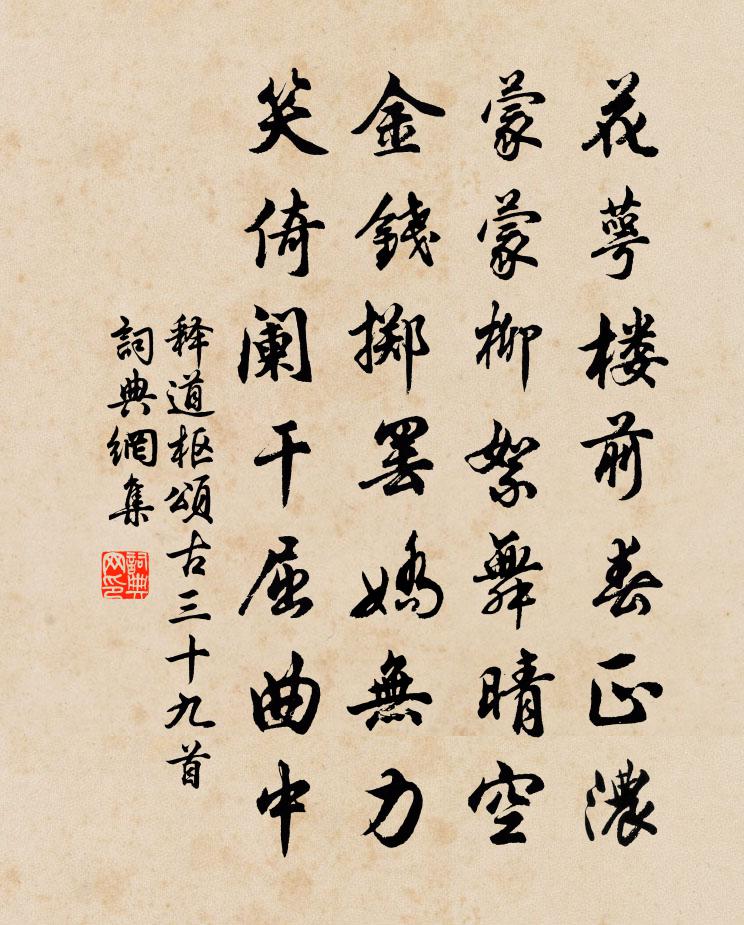 花萼楼前春正濃
蒙蒙柳絮舞晴空
金錢掷罢嬌無力
笑倚阑干屈曲中
释道枢頌古三十九首
詞典網集
詞典网印